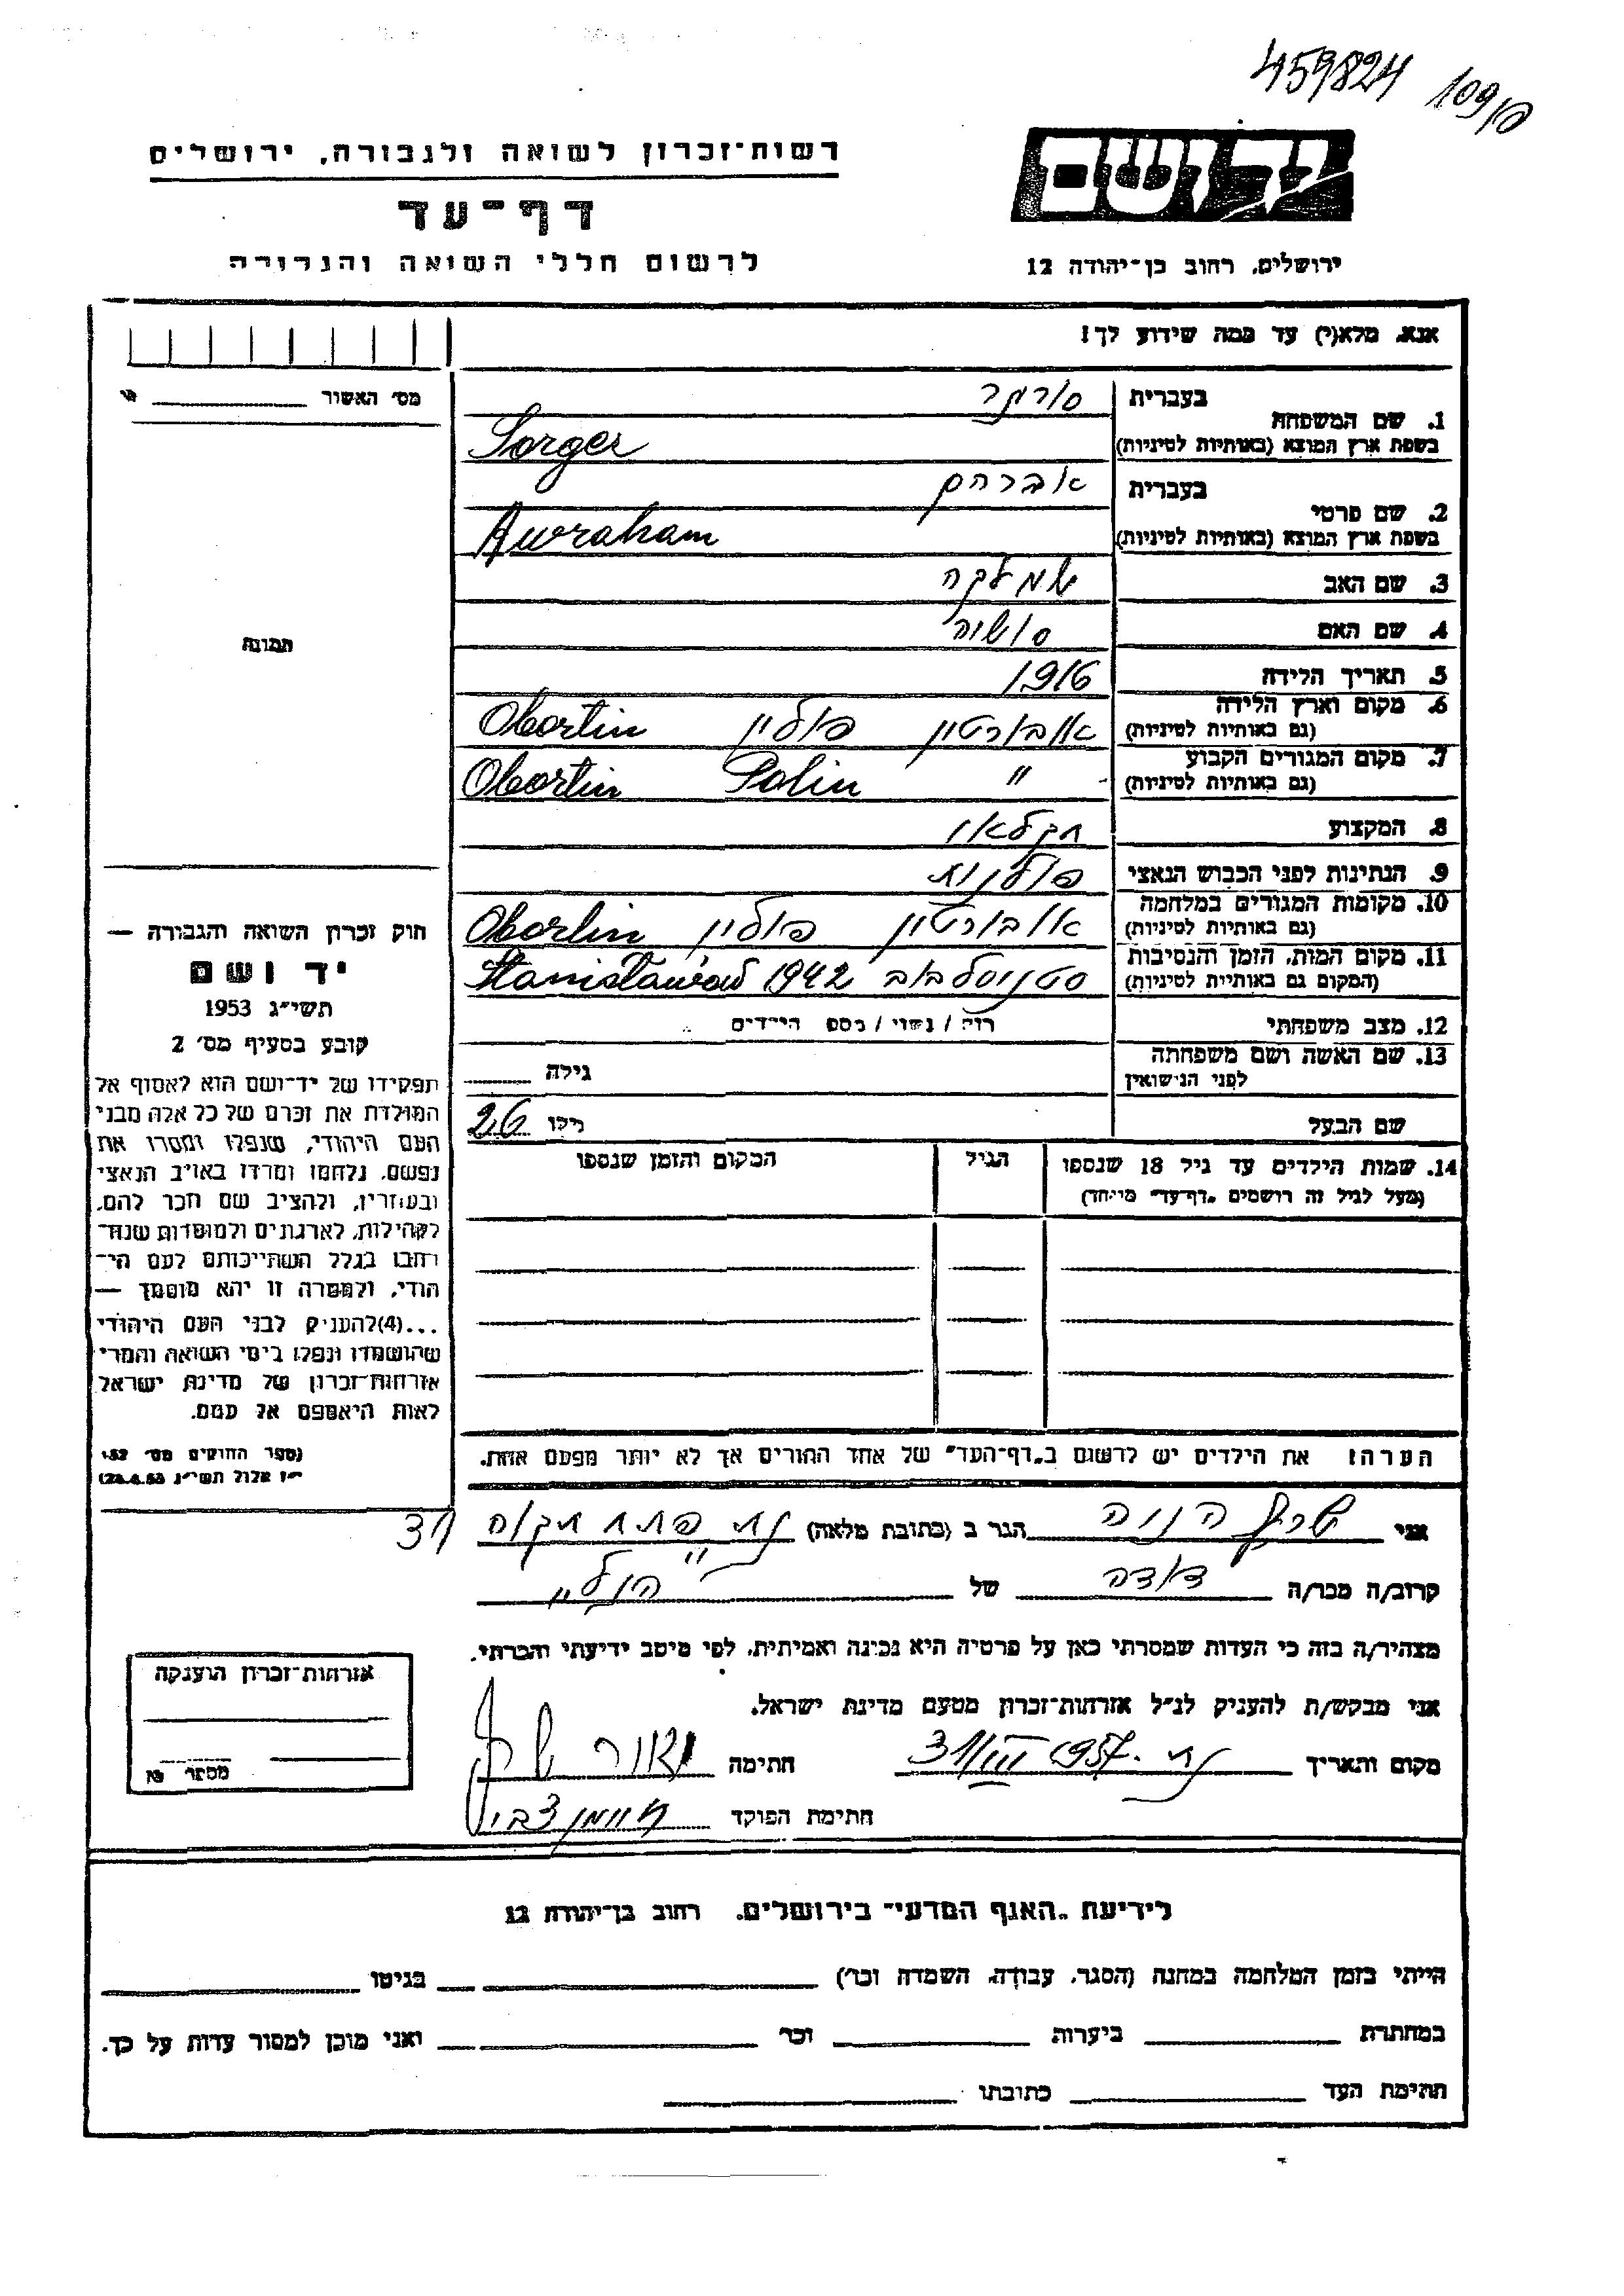 459824 109/פ
יד ושם
ירושלים, רחוב בן־יהודה 12
רשות־זכרון לשואה ולגבורה, ירושלים
דף־עד
לרשום חללי השואה והגבורה
אנא, מלא(י) עד כמה שידוע לך!
1. שם המשפחה בעברית
בשפת ארץ המוצא (באותיות לטיניות) Sorger
2. שם פרטי בעברית אברהם
בשפת ארץ המוצא (באותיות לטיניות) Awraham
3. שם האב שמלקה
4. שם האם
5. תאריך הלידה 1916
6. מקום וארץ הלידה
(גם באותיות לטיניות) אוברטין פולין Obertin
7. מקום המגורים הקבוע
(גם באותיות לטיניות) " Polin Obertin
8. המקצוע חקלאי
9. הנתינות לפני הכבוש הנאצי פולנית
10. מקומות המגורים במלחמה
(גם באותיות לטיניות) אוברטין פולין Obertin
11. מקום המות, הזמן והנסיבות
(המקום גם באותיות לטיניות) סטניסלבוב 1942 Stanisławów
12. מצב משפחתי רוק / נשוי / מספר הילדים
13. שם האשה ושם משפחתה
לפני הנישואין גילה
שם הבעל גילו 26
14. שמות הילדים עד גיל 18 שנספו הגיל המקום והזמן שנספו
(מעל לגיל זה רושמים "דף־עד" מיוחד)
הערה: את הילדים יש לרשום ב"דף־העד" של אחד ההורים אך לא יותר מפעם אחת.
מס' האשור
תמונה
חוק זכרון השואה והגבורה —
יד ושם
תשי"ג 1953
קובע בסעיף מס' 2
תפקידו של יד־ושם הוא לאסוף אל
המולדת את זכרם של כל אלה מבני
העם היהודי, שנפלו ומסרו את
נפשם, נלחמו ומרדו באויב הנאצי
ובעוזריו, ולהציב שם וזכר להם,
לקהילות, לארגונים ולמוסדות שנח־
רבו בגלל השתייכותם לעם הי־
הודי, ולמטרה זו יהא מוסמך —
...(4) להעניק לבני העם היהודי
שהושמדו ונפלו בימי השואה והמרי
אזרחות־זכרון של מדינת ישראל
לאות היאספם אל עמם.
(ספר החוקים מס' 132
י"ז אלול תשי"ג 28.8.53)
אני הגר ב (כתובת מלאה) פתח תקוה 31
קרוב/ה מכר/ה דודה של הנ"ל
מצהיר/ה בזה כי העדות שמסרתי כאן על פרטיה היא נכונה ואמיתית, לפי מיטב ידיעתי והכרתי.
אני מבקש/ת להעניק לנ"ל אזרחות־זכרון מטעם מדינת ישראל.
מקום ותאריך 31/III 1957 חתימה
חתימת הפוקד
אזרחות־זכרון הוענקה
מספר
לידיעת "האגף המדעי" בירושלים, רחוב בן־יהודה 12
הייתי בזמן המלחמה במחנה (הסגר, עבודה, השמדה וכו') בגיטו
במחתרת ביערות וכו' ואני מוכן למסור עדות על כך.
חתימת העד כתובתו